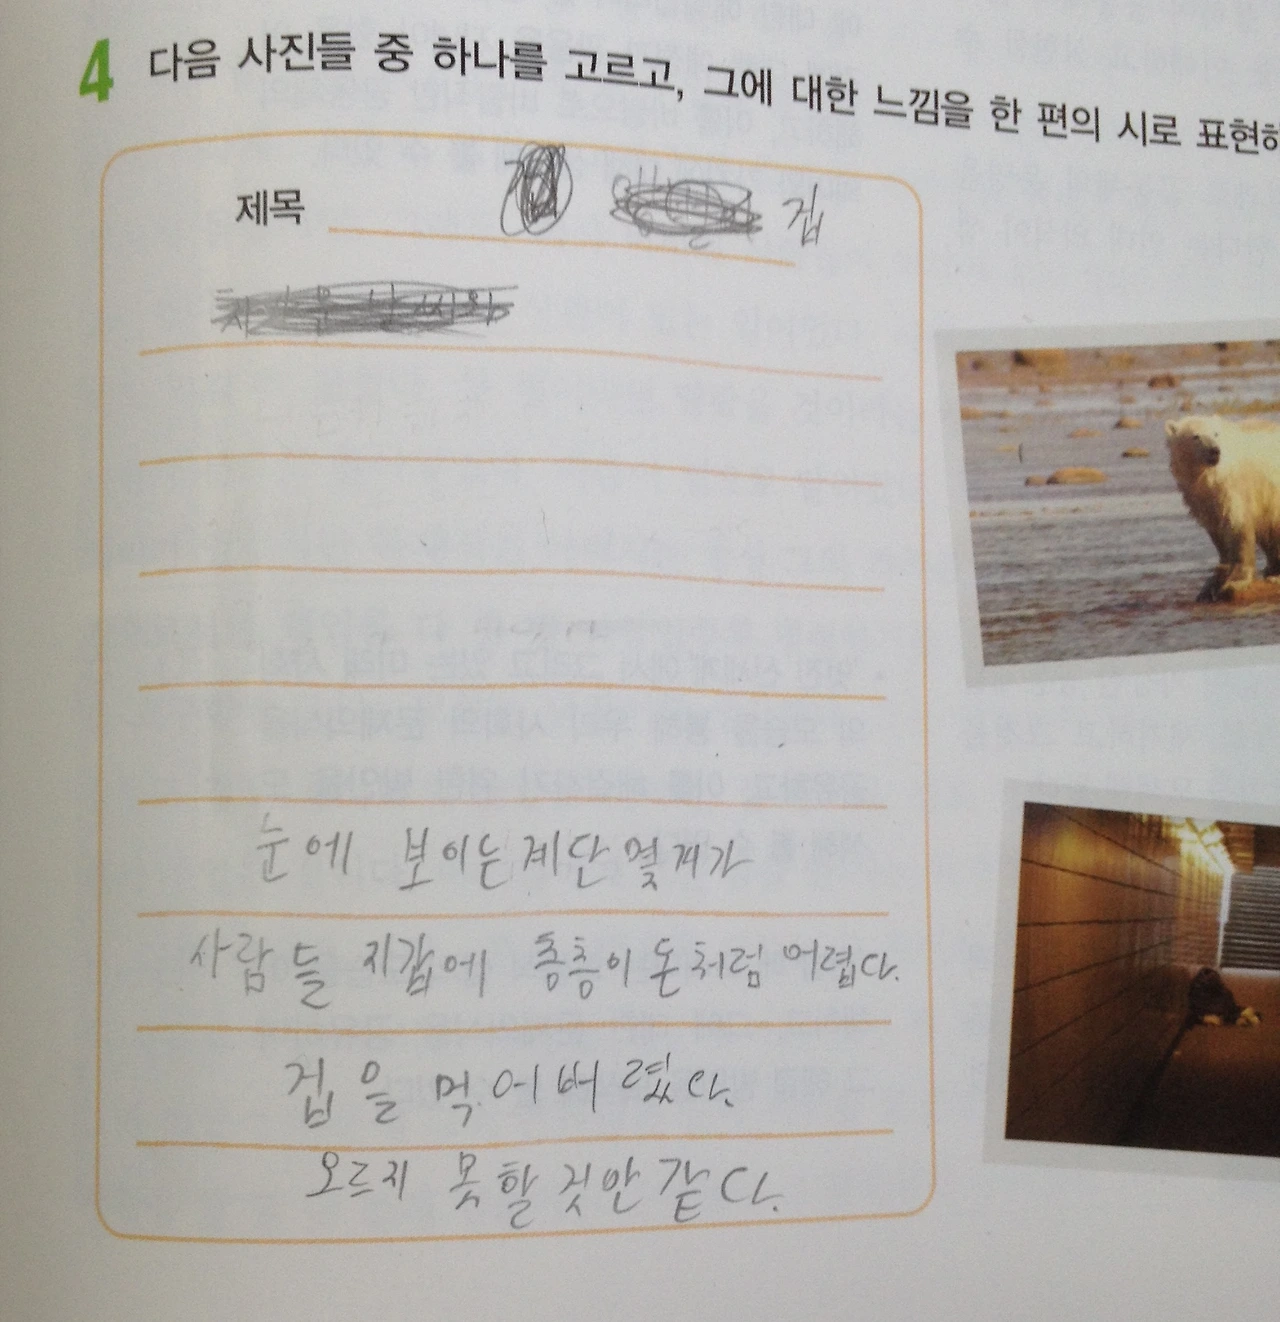 4 다음 사진들 중 하나를 고르고, 그에 대한 느낌을 한 편의 시로 표현하
제목 겁
눈에 보이는 계단 몇개가
사람들 지갑에 층층이 돈처럼 어렵다.
겁을 먹어버렸다.
오르지 못할것만 같다.